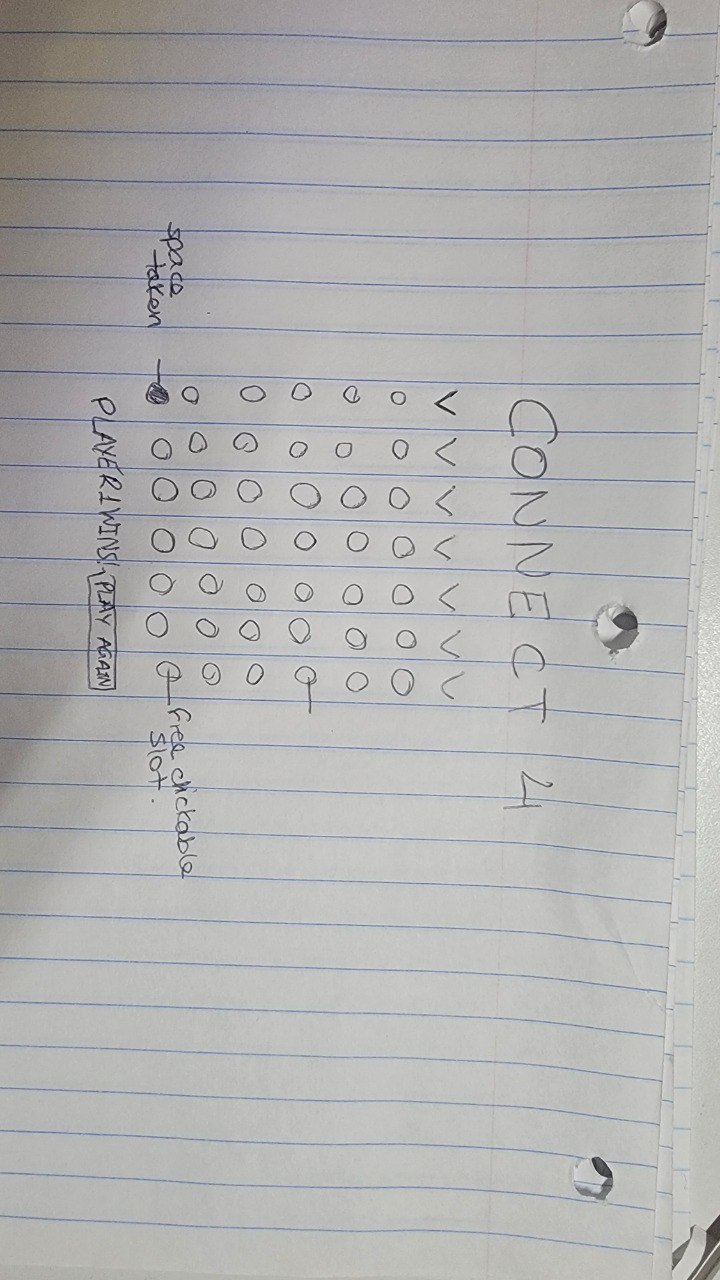 CONNECT 4
V V V V V V V
space
taken
free clickable
slot.
PLAYER 1 WINS! PLAY AGAIN